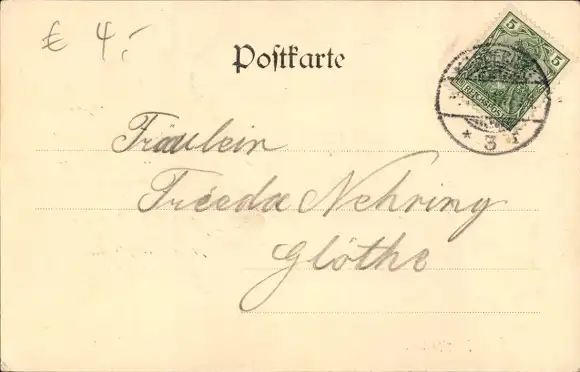 € 4,-
Postkarte
5 5
* 3
Fräulein
Frieda Nehring
Glöthe